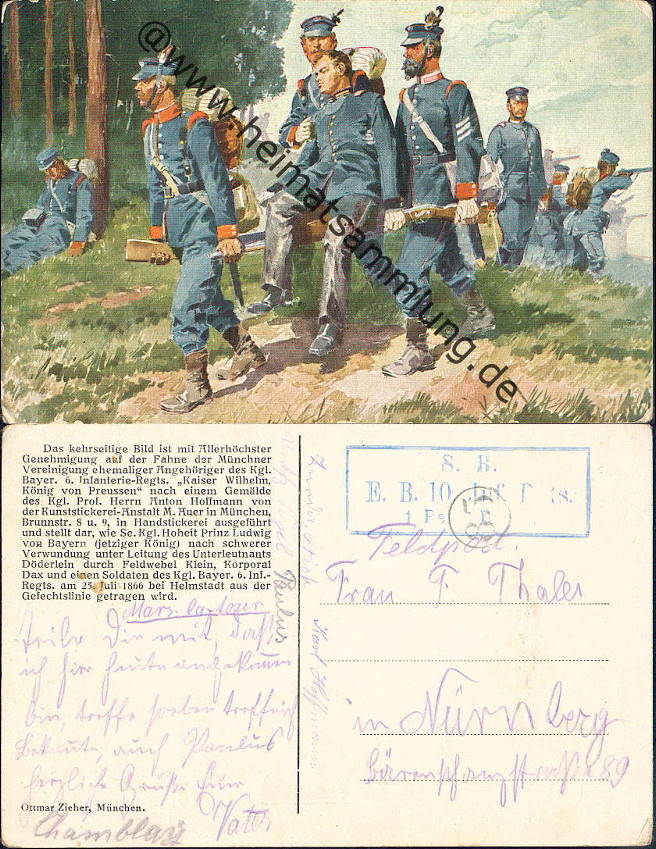 @www.heimatsammlung.de
Das kehrseitige Bild ist mit Allerhöchster
Genehmigung auf der Fahne der Münchner
Vereinigung ehemaliger Angehöriger des Kgl.
Bayer. 6. Infanterie-Regts. „Kaiser Wilhelm,
König von Preussen“ nach einem Gemälde
des Kgl. Prof. Herrn Anton Hoffmann von
der Kunststickerei-Anstalt M. Auer in München,
Brunnstr. 8 u. 9, in Handstickerei ausgeführt
und stellt dar, wie Se. Kgl. Hoheit Prinz Ludwig
von Bayern (jetziger König) nach schwerer
Verwundung unter Leitung des Unterleutnants
Döderlein durch Feldwebel Klein, Korporal
Dax und einen Soldaten des Kgl. Bayer. 6. Inf.-
Regts. am 25. Juli 1866 bei Helmstadt aus der
Gefechtslinie getragen wird.
Mars-la-tour
Teile Dir mit, daß
ich hier heute angekommen
bin, treffe soeben
Bekannte, auch Paulus
herzliche Grüße Euer
Vater
Ottmar Zieher, München.
Chambley
Paulus
S. B.
E. B. 10. Inf.
Feldpost.
Frau F. Thaler
in Nürnberg
Bärenschanzstraße 89